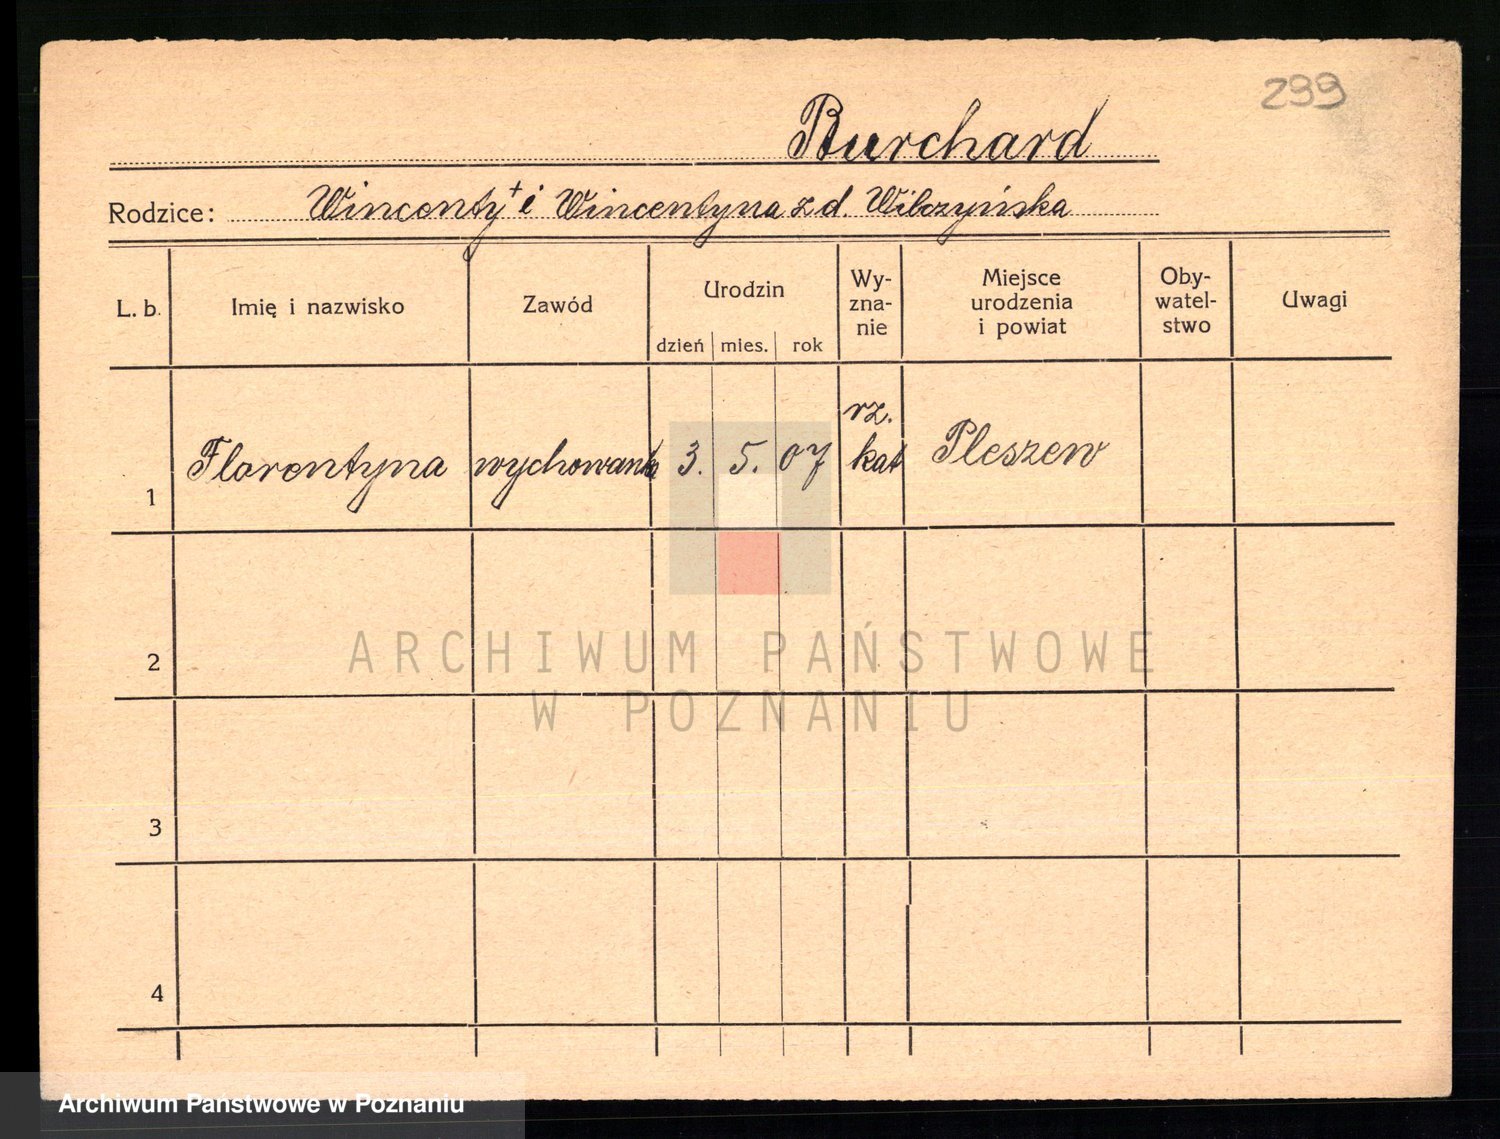 299
Burchard
Rodzice: Winconty + i Wincentyna z d. Wilczyńska
L. b.
Imię i nazwisko
Zawód
Urodzin
dzień mies. rok
Wy-
zna-
nie
Miejsce
urodzenia
i powiat
Oby-
watel-
stwo
Uwagi
1 Florentyna wychowanka 3. 5. 07 rz. kat Pleszew
2
3
4
ARCHIWUM PAŃSTWOWE
W POZNANIU
Archiwum Państwowe w Poznaniu